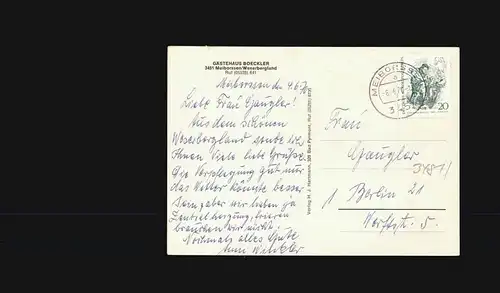 GÄSTEHAUS BOECKLER
3451 Meiborssen/Weserbergland
Ruf (05535) 441
Meiborssen den 4.6.70
Liebe Frau Gaugler!
Aus dem schönen
Weserbergland sende ich
Ihnen viele liebe Grüße.
Die Verpflegung gut nur
das Wetter könnte besser
sein aber wir haben ja
Zentralheizung, frieren
brauchen wir nicht.
Nochmals alles Gute
Winkler
Verlag H. J. Herrmann, 328 Bad Pyrmont, Ruf
MEIBORSSEN
20
Frau
Gaugler
1 Berlin 21
5.